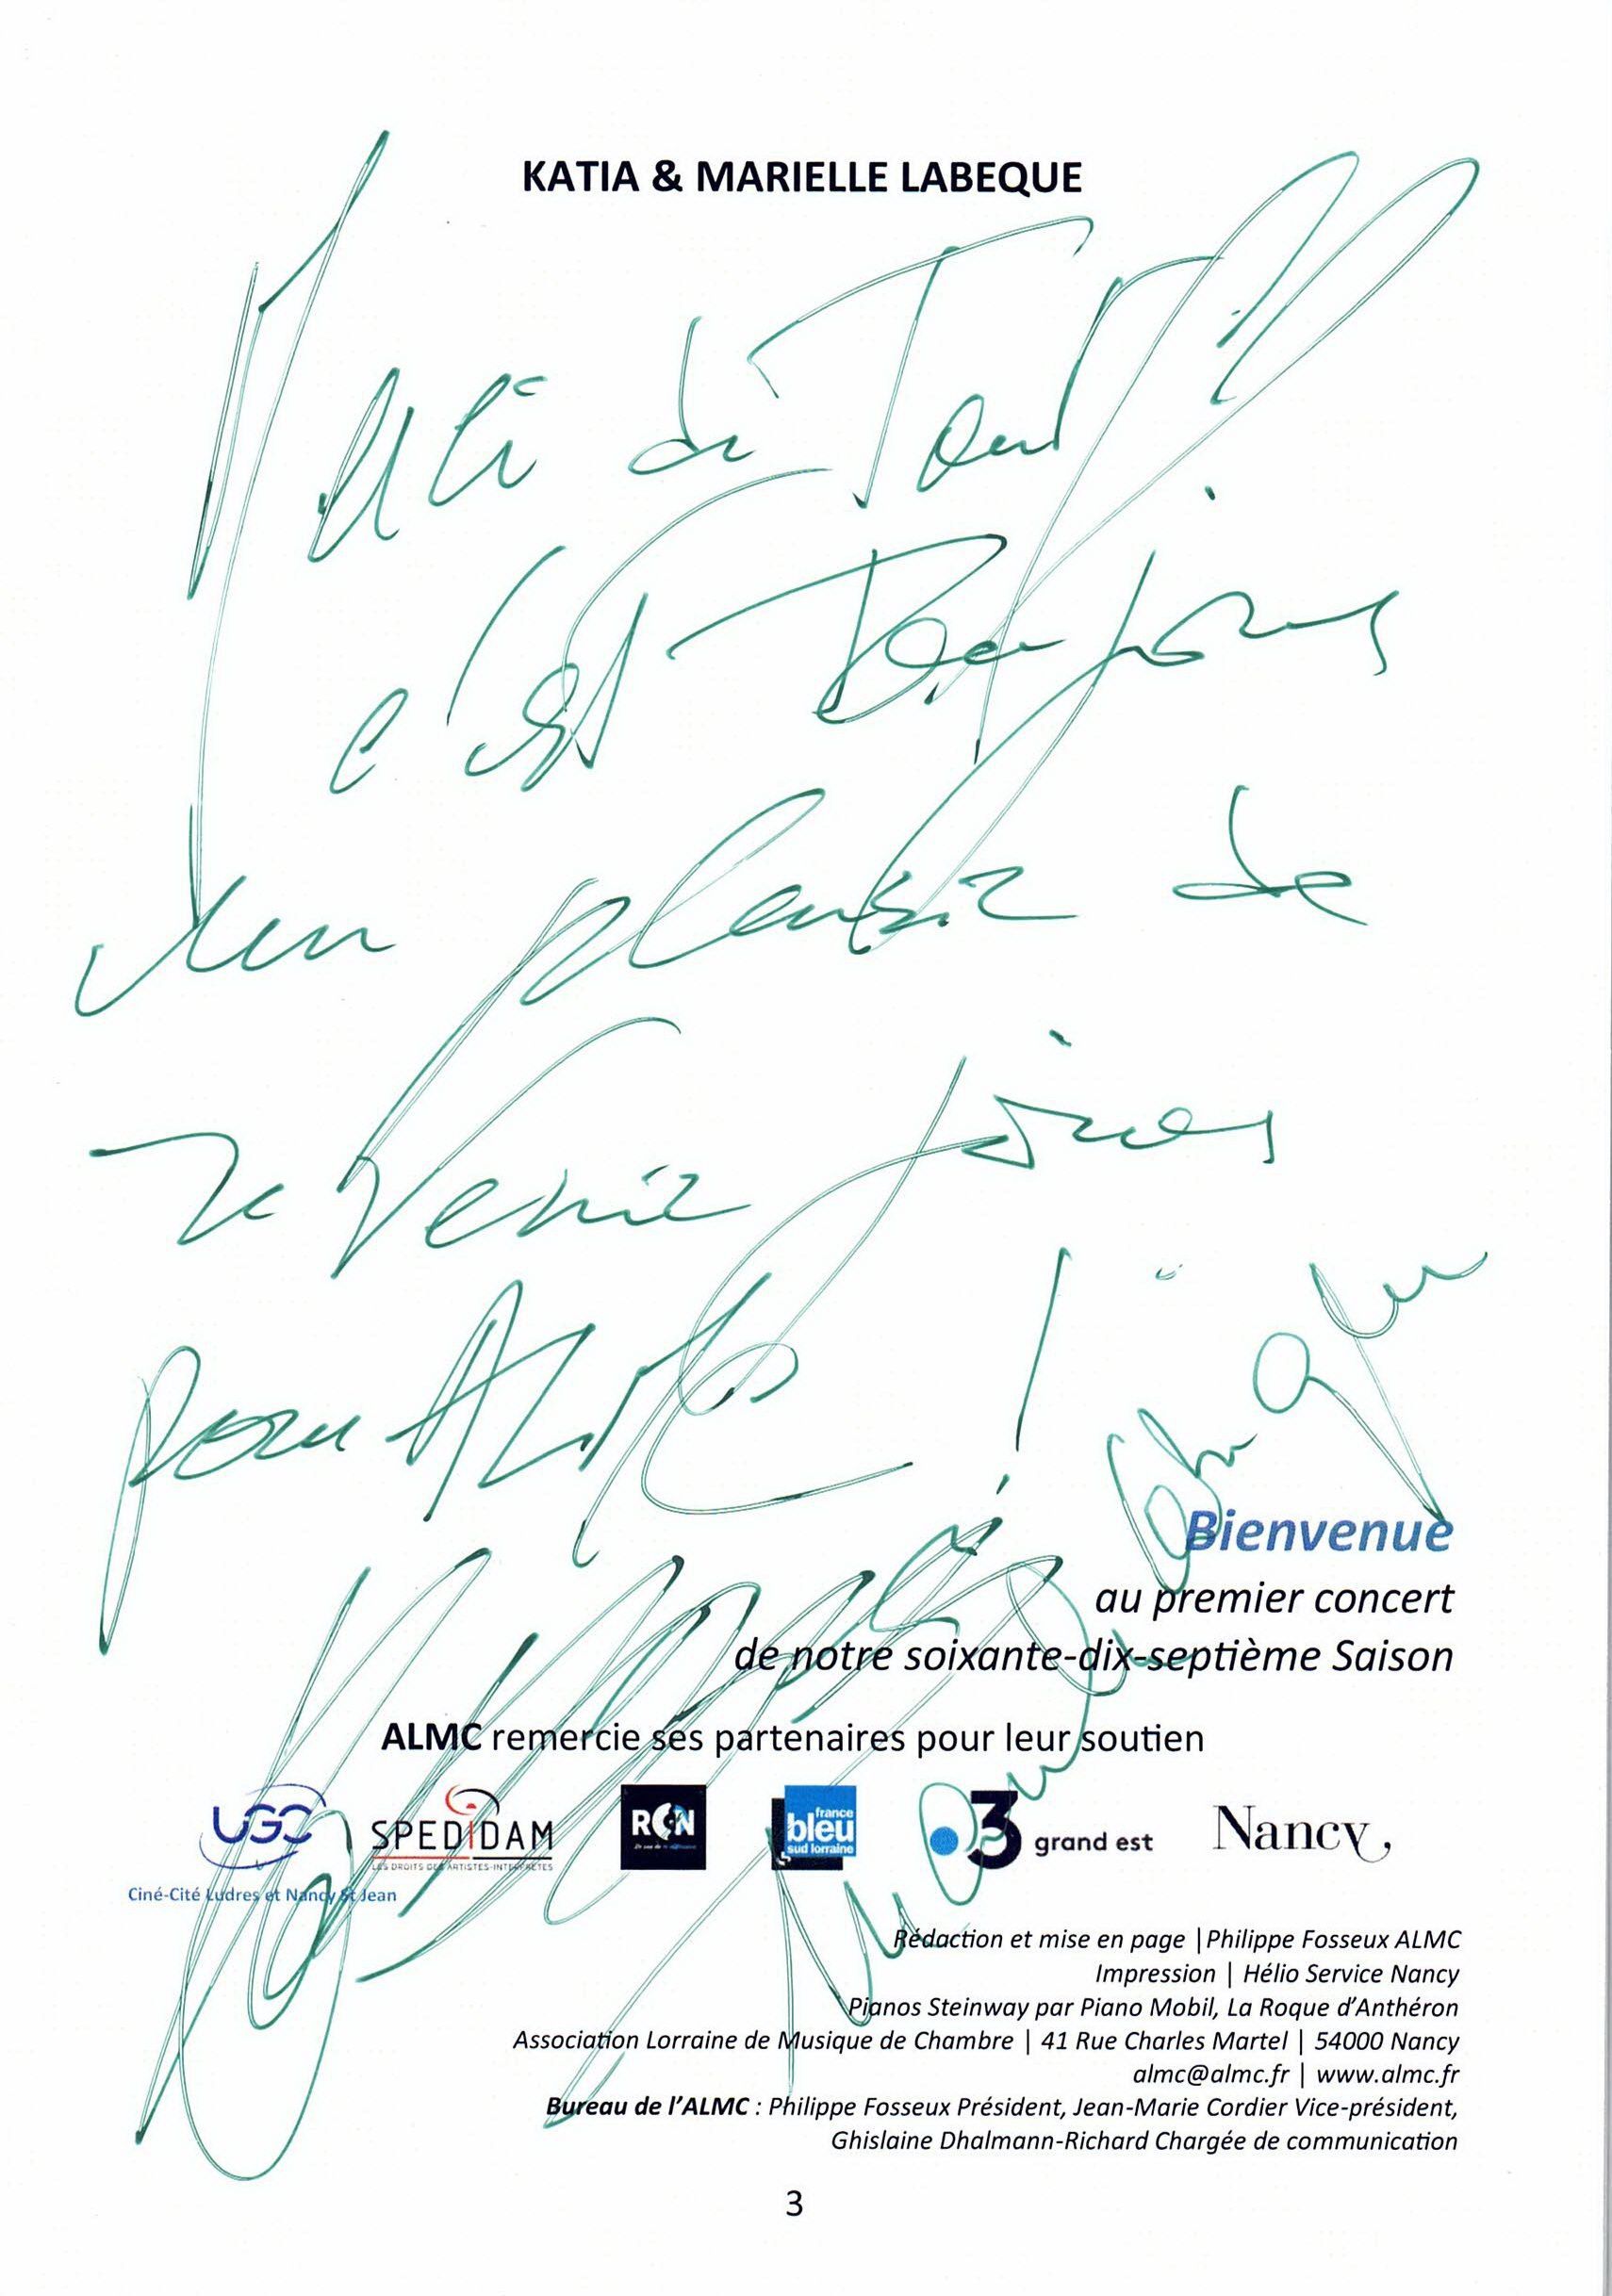 KATIA & MARIELLE LABEQUE
Merci de Tout
c'est Toujours
un plaisir de
revenir jouer
pour ALMC !
Bienvenue
au premier concert
de notre soixante-dix-septième Saison
ALMC remercie ses partenaires pour leur soutien
UGC
Ciné-Cité Ludres et Nancy St Jean
SPEDIDAM
LES DROITS DES ARTISTES-INTERPRÈTES
RCN
france
bleu
sud lorraine
3 grand est
Nancy,
Rédaction et mise en page | Philippe Fosseux ALMC
Impression | Hélio Service Nancy
Pianos Steinway par Piano Mobil, La Roque d'Anthéron
Association Lorraine de Musique de Chambre | 41 Rue Charles Martel | 54000 Nancy
almc@almc.fr | www.almc.fr
Bureau de l'ALMC : Philippe Fosseux Président, Jean-Marie Cordier Vice-président,
Ghislaine Dhalmann-Richard Chargée de communication
3